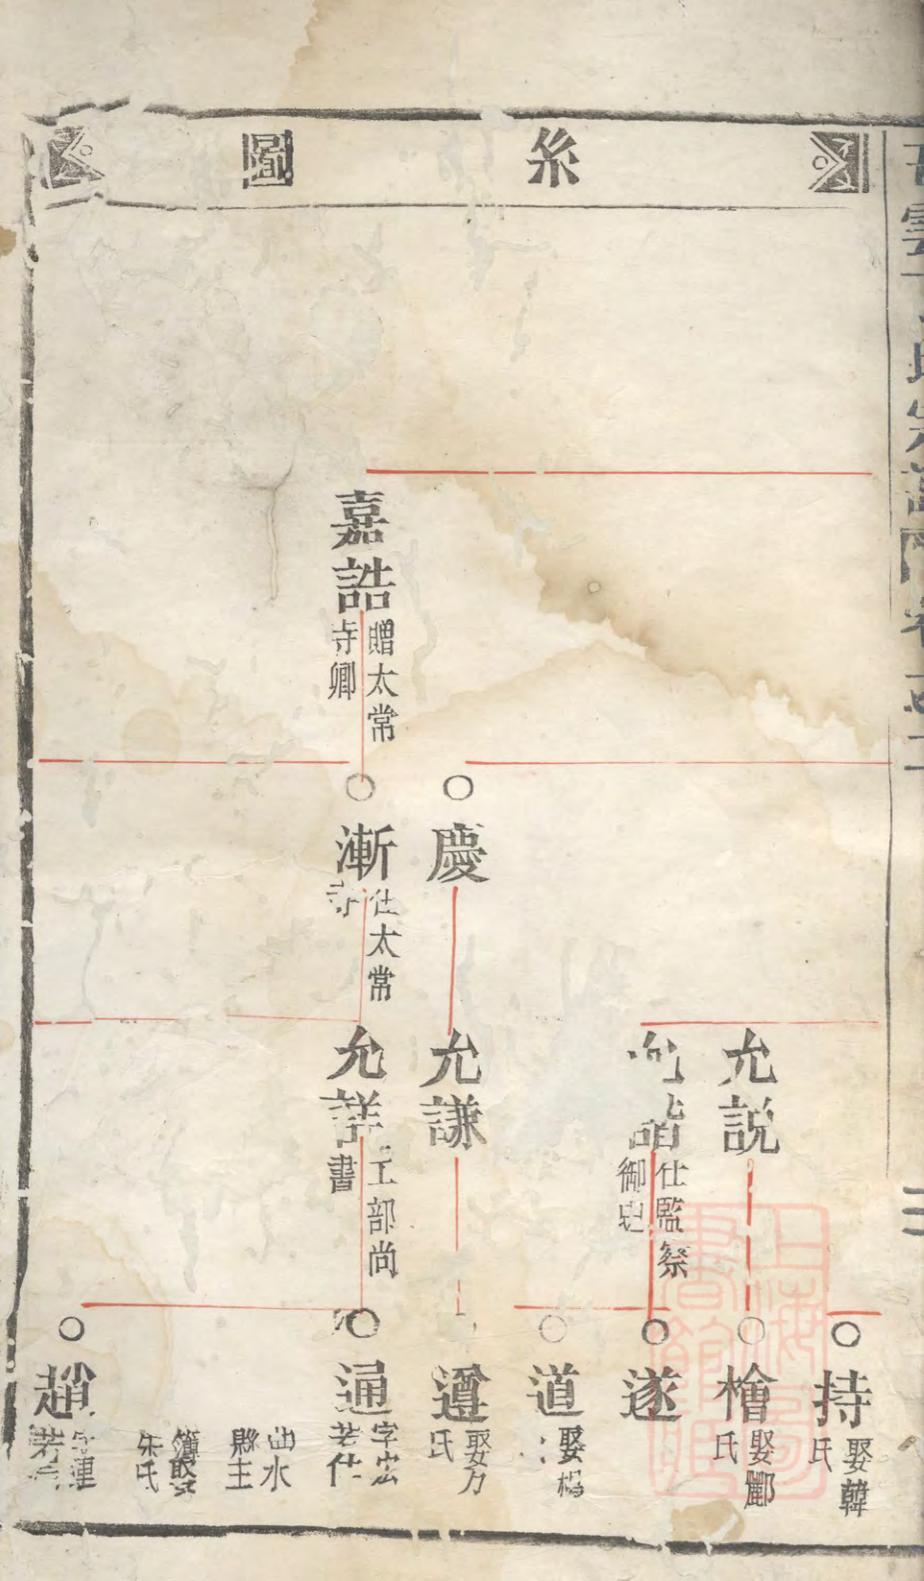 系圖
嘉誥
贈太常
寺卿
慶
漸
仕太常
寺
允説
仕監察
御史
允謙
允詳
工部尚
書
持
娶韓
氏
檜
娶酈
氏
遂
道
娶楊
遵
氏
通
字宏
若仕
水
縣主
簿娶
朱氏
趙